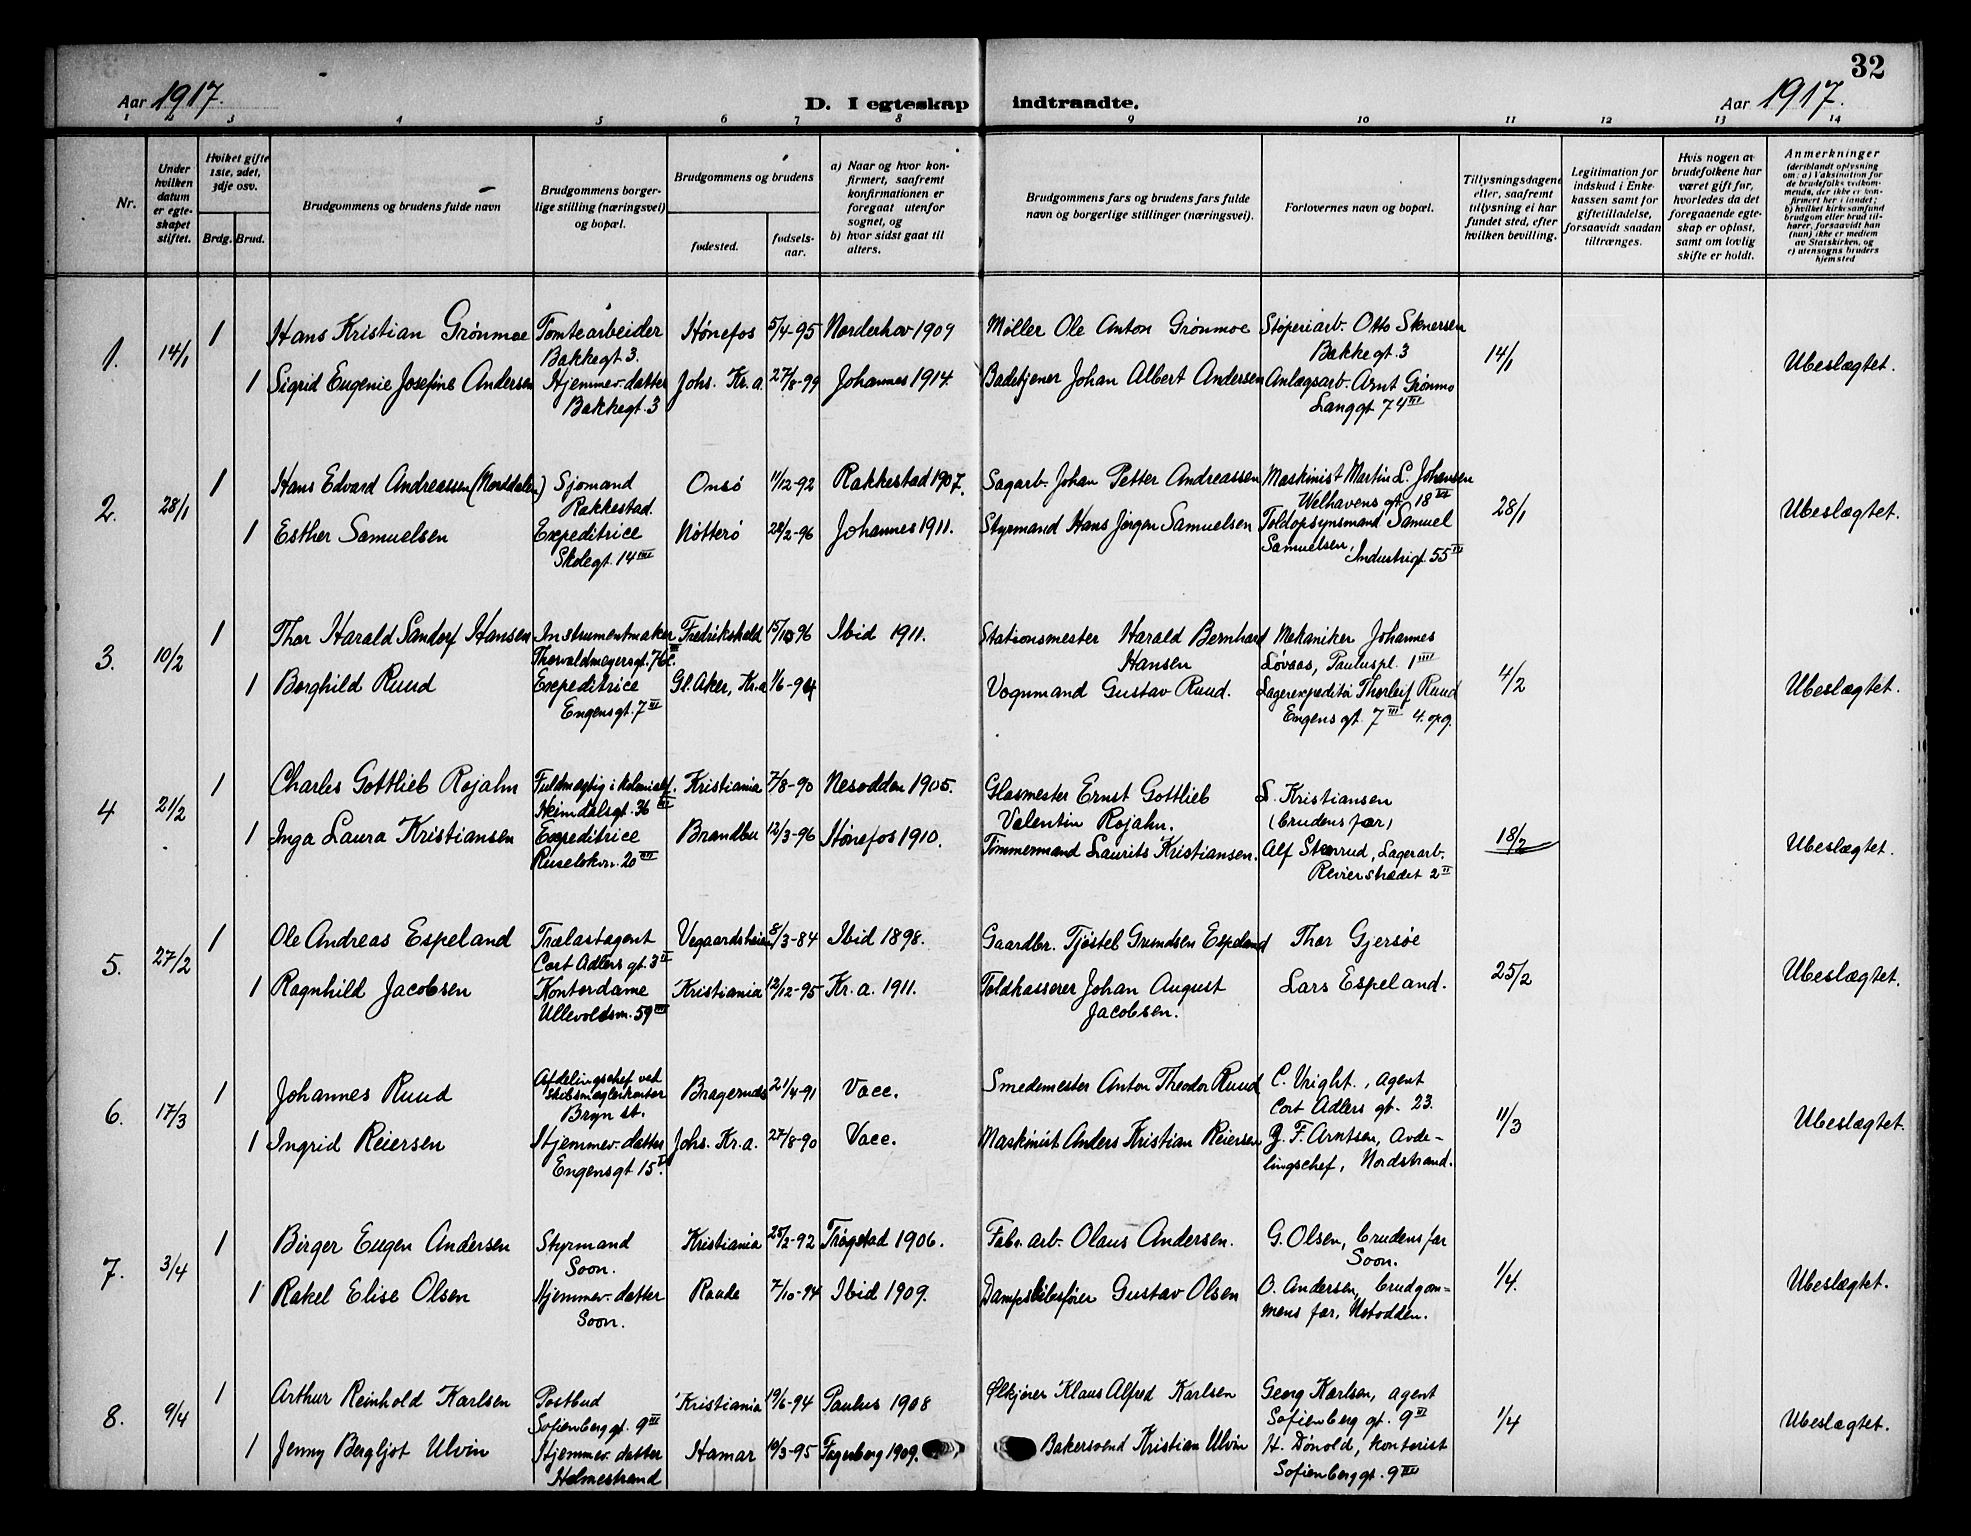 32
Aar 1917. D. I egteskap indtraadte. Aar 1917.
1 2 3 4 5 6 7 8 9 10 11 12 13 14
Nr.
Under hvilken datum er egteskapet stiftet.
Hvilket gifte 1ste, 2det, 3dje osv.
Brdg. Brud.
Brudgommens og brudens fulde navn
Brudgommens borgerlige stilling (næringsvei) og bopæl.
Brudgommens og brudens
fødested.
fødselsaar.
a) Naar og hvor konfirmert, saafremt konfirmationen er foregaat utenfor sognet, og
b) hvor sidst gaat til alters.
Brudgommens fars og brudens fars fulde navn og borgerlige stillinger (næringsvei).
Forlovernes navn og bopæl.
Tillysningsdagene eller, saafremt tillysning ei har fundet sted, efter hvilken bevilling.
Legitimation for indskud i Enkekassen samt for giftetilladelse, forsaavidt saadan tiltrænges.
Hvis nogen av brudefolkene har været gift før, hvorledes da det foregaaende egteskap er opløst, samt om lovlig skifte er holdt.
Anmerkninger
(deriblandt oplysning om: a) Vaksination for de brudefolks vedkommende, der ikke er konfirmert her i landet; b) hvilket kirkesamfund brudgom eller brud tilhører, forsaavidt han (hun) ikke er medlem av Statskirken, og c) utensogns bruders hjemsted
1. 14/1 1 Hans Kristian Grønmoe Tomtearbeider Bakkegt 3. Hønefos 5/4-95 Norderhov 1909 Møller Ole Anton Grønmoe Støperiarb. Otto Bakkegt 3 14/1 Ubeslægtet.
1 Sigrid Eugenie Josefine Andersen Hjemmev. datter Bakkegt. 3 Johs. Kr.a. 27/8-99 Johannes 1914. Badetjener Johan Albert Andersen Anlægsarb. Arnt Grønmo Langgt 74 III
2. 28/1 1 Hans Edvard Andreassen (Norddalen) Sjømand Rakkestad. Onsø 11/12-92 Rakkestad 1907. Sagarb. Johan Petter Andreassen Maskinist Martin L. Johansen Welhavens gt. 18 28/1 Ubeslægtet.
1 Esther Samuelsen Expeditrice Skolegt. 14 III Nøtterø 28/2-96 Johannes 1911. Styrmand Hans Jørgen Samuelsen Toldopsynsmand Samuel Samuelsen, Industrigt. 55 III
3. 10/2 1 Thor Harald Sandorf Hansen Instrumentmaker Thorvaldmeyersgt. Fredrikshald 15/10 96 Ibid 1911. Stationsmester Harald Bernhard Hansen Mekaniker Johannes Løvaas, Pauluspl. 1 III 4/2 Ubeslægtet.
1 Borghild Ruud Expeditrice Engensgt. 7 III Gl. Aker, Kr.a 1/6-94 Vognmand Gustav Ruud. Lagerexpeditør Thorleif Ruud Engens gt. 7 III 4. opg.
4 21/2 1 Charles Gottlieb Rojahn Fuldmægtig i kolonialf. Heimdalsgt. 36 III Kristiania 7/8-90 Nesodden 1905. Glasmester Ernst Gottlieb Valentin Rojahn. L. Kristiansen (brudens far) 18/2 Ubeslægtet.
1 Inga Laura Kristiansen Expeditrice Ruseløkvn. 20 III Brandbu 12/3-96 Hønefos 1910. Tømmermand Laurits Kristiansen. Alf Skøvrud, Lagerarb. Revierstrædet 2 II
5. 27/2 1 Ole Andreas Espeland Trælastagent Cort Adlers gt. 3 II Vegaardsheien 8/3-84 Ibid 1898. Gaardbr. Tjøstel Gundsen Espeland Thor Gjersøe 25/2 Ubeslægtet.
1 Ragnhild Jacobsen Kontordame Ullevoldsv. 59 III Kristiania 12/12-95 Kr.a. 1911. Toldkasserer Johan August Jacobsen. Lars Espeland.
6. 17/3 1 Johannes Ruud Afdelingschef ved skibsmæglerkontor Bryn st. Bragernæs 21/4-91 Vacc. Smedemester Anton Theodor Ruud C. Wright., agent Cort Adlers gt. 23. 11/3 Ubeslægtet.
1 Ingrid Reiersen Hjemmev. datter Engensgt 15 Johs. Kr.a. 27/8-90 Vacc. Maskinist Anders Kristian Reiersen F. Arntsen, Avdelingschef, Nordstrand.
7. 3/4 1 Birger Eugen Andersen Styrmand Soon. Kristiania 25/2-92 Trøgstad 1906. Fabr. arb. Olaus Andersen. G. Olsen, brudens far Soon. 1/4. Ubeslægtet.
1 Rakel Elise Olsen Hjemmev. datter Soon. Raade 7/10-94 Ibid 1909. Dampskibsfører Gustav Olsen O. Andersen, brudgommens far, Notodden.
8. 9/4 1 Arthur Reinhold Karlsen Postbud Sofienberg gt. 9 III Kristiania 19/6-94 Paulus 1908 Ølkjører Klaus Alfred Karlsen Georg Karlsen, agent Sofienberg gt. 9 1/4 Ubeslægtet.
1 Jenny Bergljot Ulvin Hjemmev. datter Holmestrand Hamar 10/3-95 Fagerborg 1909. Bakersvend Kristian Ulvin H. Dønold, kontorist Sofienberggt. 9 III